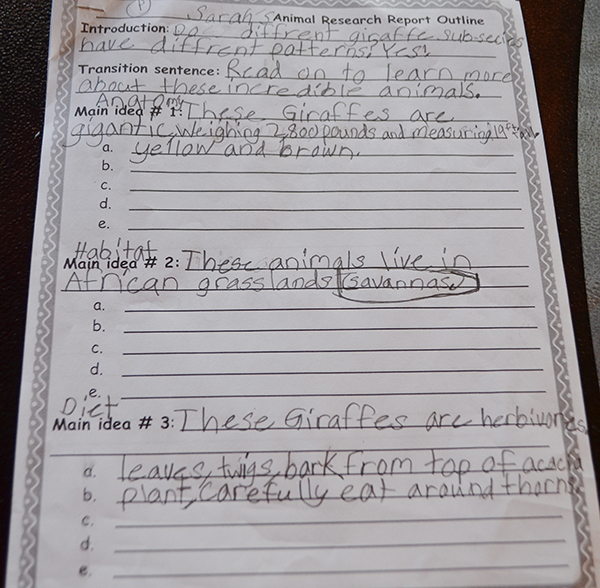 P
Sarah's Animal Research Report Outline
Introduction: Do diffrent giraffe sub-secies
have diffrent patterns? Yes!
Transition sentence: Read on to learn more
about these incredible animals.
Anatomy
Main idea # 1: These Giraffes are
gigantic, weighing 2,800 pounds and measuring 19 ft
a. yellow and brown.
b.
c.
d.
e.
Habitat
Main idea # 2: These animals live in
African grasslands (savannas.)
a.
b.
c.
d.
e.
Diet
Main idea # 3: These Giraffes are herbivores
a. leaves, twigs, bark from top of acacia
b. plant, carefully eat around thorns
c.
d.
e.